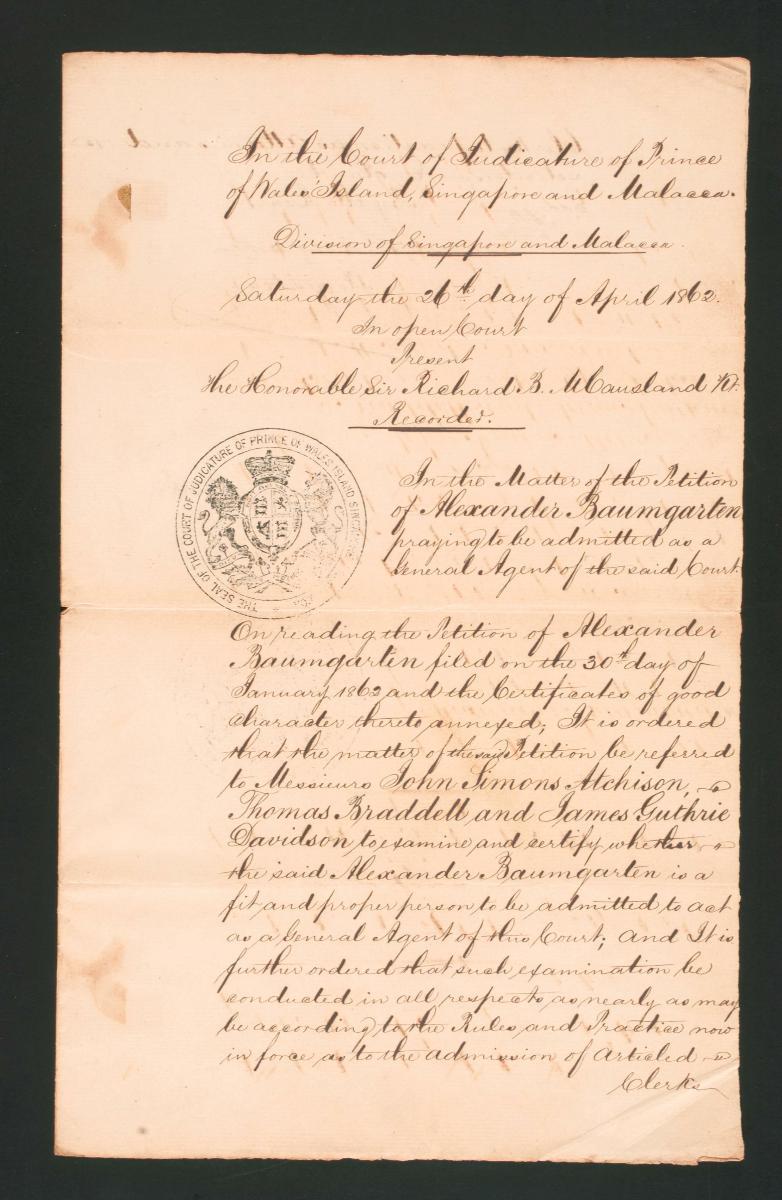 In the Court of Judicature of Prince
of Wales' Island, Singapore and Malacca.
Division of Singapore and Malacca.
Saturday the 26th day of April 1862.
In open Court
Present
The Honorable Sir Richard B. McCausland Kt.
Recorder.
THE SEAL OF THE COURT OF JUDICATURE OF PRINCE OF WALES ISLAND
In the Matter of the Petition
of Alexander Baumgarten
praying to be admitted as a
General Agent of the said Court.
On reading the Petition of Alexander
Baumgarten filed on the 30th day of
January 1862 and the Certificates of good
character thereto annexed; It is ordered
that the matter of the said Petition be referred
to Messieurs John Simons Atchison,
Thomas Braddell and James Guthrie
Davidson to examine and certify whether
the said Alexander Baumgarten is a
fit and proper person to be admitted to act
as a General Agent of this Court; and It is
further ordered that such examination be
conducted in all respects as nearly as may
be according to the Rules and Practice now
in force as to the admission of Articled
Clerks